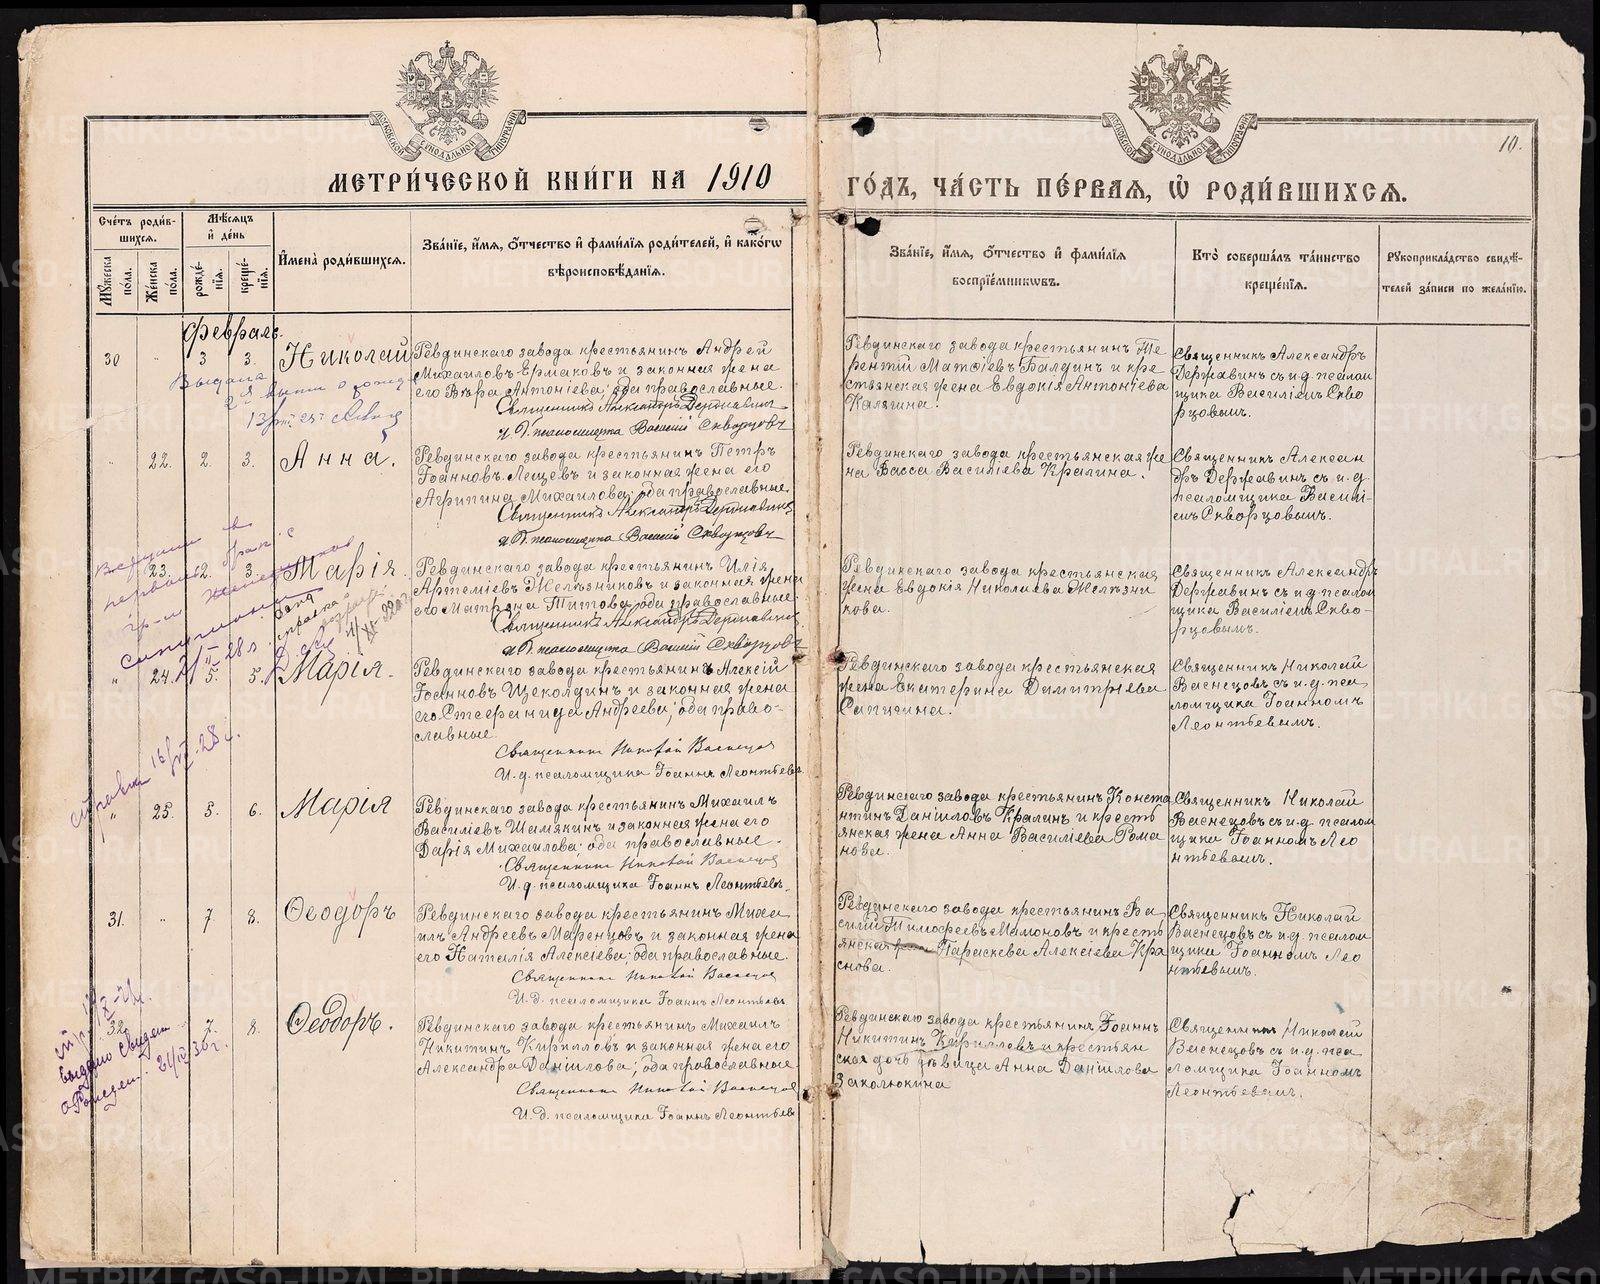 МЕТРИ́ЧЕСКОЙ КНИ́ГИ НА 1910
ГО́ДЪ, ЧА́СТЬ ПЕ́РВАѦ, Ѽ РОДИ́ВШИХСѦ.
10.
Счéтъ роди́в-
шихсѧ.
Мѣ́сѧцъ
и҆ де́нь
И҆мена̀ роди́вшихсѧ.
Зва́нїе, и҆́мѧ, ѻ҆́тчество и҆ фами́лїѧ роди́телей, и҆ како́гѡ
вѣроисповѣ́данїѧ.
Мꙋ́жеска
по́ла.
Же́нска
по́ла.
рожде́-
нїѧ.
креще́-
нїѧ.
Зва́нїе, и҆́мѧ, ѻ҆́тчество и҆ фами́лїѧ
воспрїе́мникѡвъ.
Кто̀ соверша́лъ та́инство
креще́нїѧ.
Рꙋкоприкла́дство свидѣ́-
телей за́писи по жела́нїю.
Февраль.
30 " 3 3. Николай
Ревдинскаго завода крестьянинъ Андрей
Михаиловъ Ермаковъ и законная жена
его Вѣра Антонiева; оба православные.
Священникъ Александръ Державинъ
и.д. псаломщика Василiй Скворцовъ
Ревдинскаго завода крестьянинъ Те-
рентiй Матѳiевъ Балдинъ и кре-
стьянская жена Евдокiя Антонiева
Калягина.
Священникъ Александръ
Державинъ съ и.д. псалом
щика Василiемъ Сквор
рцовымъ.
" 22. 2. 3. Анна.
Ревдинскаго завода крестьянинъ Петръ
Iоанновъ Лещевъ и законная жена его
Агрипина Михаилова; оба православные.
Священникъ Александръ Державинъ
и.д. псаломщика Василiй Скворцовъ
Ревдинскаго завода крестьянская же
на Васса Василiева Кралина.
Священникъ Алексан
дръ Державинъ съ и.д.
псаломщика Василi-
емъ Скворцовымъ.
23. 2. 3. Марiя
Ревдинскаго завода крестьянинъ Илiя
Артемiевъ Желѣзниковъ и законная жена
его Матрона Титова; оба православные.
Священникъ Александръ Державинъ
и.д. псаломщика Василiй Скворцовъ
Ревдинскаго завода крестьянская
жена Евдокiя Николаева Желѣзни
кова.
Священникъ Александръ
Державинъ съ и.д. псалом
щика Василiемъ Скво-
рцовымъ.
" 24. 5. 5. Марiя.
Ревдинскаго завода крестьянинъ Алексiй
Iоанновъ Щеколдинъ и законная жена
его Стефанида Андреева; оба право-
славные.
Священникъ Николай Васнецовъ
И.д. псаломщика Iоаннъ Леонтьевъ
Ревдинскаго завода крестьянская
жена Екатерина Димитрiева
Сапигина.
Священникъ Николай
Васнецовъ съ и.д. пса
ломщика Iоанномъ
Леонтьевымъ.
" 25. 5. 6. Марiя
Ревдинскаго завода крестьянинъ Михаилъ
Василiевъ Шамякинъ и законная жена его
Дарiя Михаилова; оба православные.
Священникъ Николай Васнецовъ
И.д. псаломщика Iоаннъ Леонтьевъ.
Ревдинскаго завода крестьянинъ Конста
нтинъ Данiиловъ Кралинъ и кресть
янская жена Анна Василiева Рома
нова.
Священникъ Николай
Васнецовъ съ и.д. псалом
щика Iоанномъ Лео
нтьевымъ.
31. " 7. 8. Ѳеодоръ
Ревдинскаго завода крестьянинъ Миха
илъ Андреевъ Маренцовъ и законная жена
его Наталiя Алексiева; оба православные.
Священникъ Николай Васнецовъ
И.д. псаломщика Iоаннъ Леонтьевъ
Ревдинскаго завода крестьянинъ Ва
силiй Тимофеевъ Мамоновъ и кресть
янская жена Параскева Алексiева Кра
снова.
Священникъ Николай
Васнецовъ съ и.д. псалом
щика Iоанномъ Лео
нтьевымъ.
32. 7. 8. Ѳеодоръ.
Ревдинскаго завода крестьянинъ Михаилъ
Никитинъ Кирилловъ и законная жена его
Александра Данiилова; оба православные
Священникъ Николай Васнецовъ
И.д. псаломщика Iоаннъ Леонтьевъ
Ревдинскаго завода крестьянинъ Iоаннъ
Никитинъ Кирилловъ и крестьян
ская дочь дѣвица Анна Данiилова
Заколюкина
Священникъ Николай
Васнецовъ съ и.д. пса
ломщика Iоанномъ
Леонтьевымъ.
справка 16/VI-28 г.
Выдано свидет.
о рожден. 21/IV 36 г.